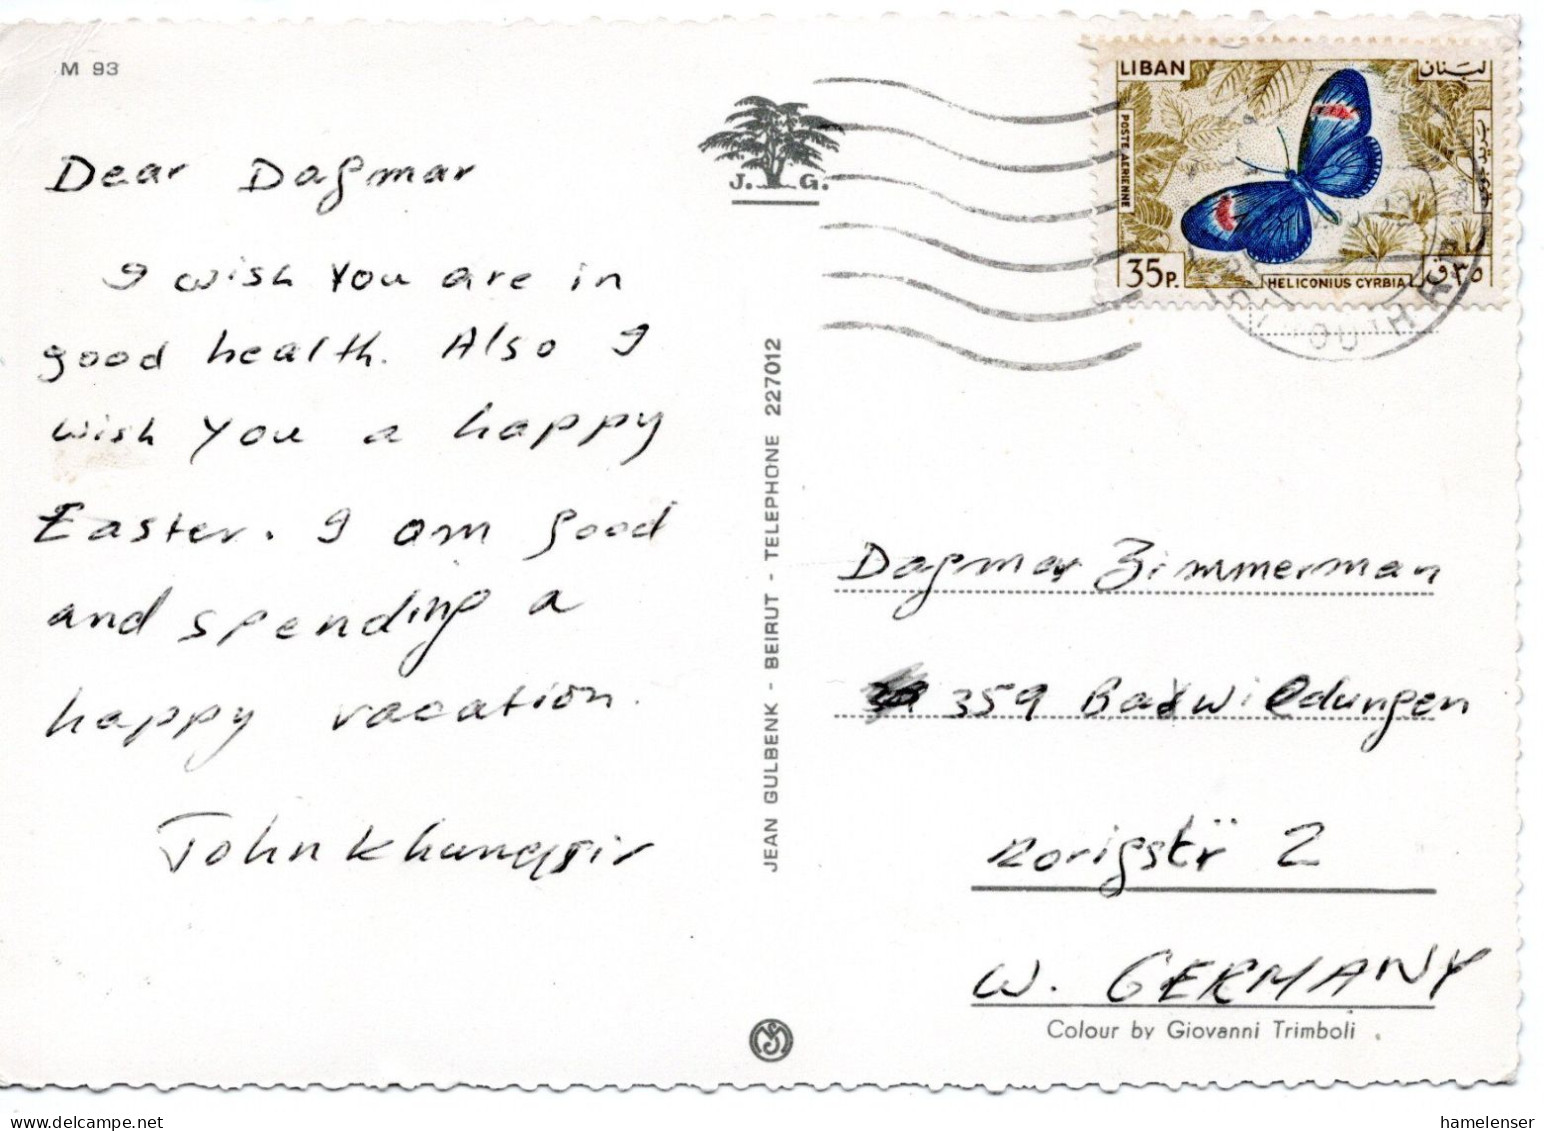 M 93
J. G.
LIBAN
لبنان
POSTE AERIENNE
بريد جوي
35P.
HELICONIUS CYRBIA
٣٥ق
Dear Dagmar
I wish you are in
good health. Also I
wish you a happy
Easter. I am good
and spending a
happy vacation.
John
JEAN GULBENK - BEIRUT - TELEPHONE 227012
Dagmar Zimmerman
359 Bad Wildungen
2
W. GERMANY
Colour by Giovanni Trimboli
hamelenser